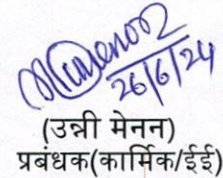 26/6/24
(उन्नी मेनन)
प्रबंधक(कार्मिक/ईई)